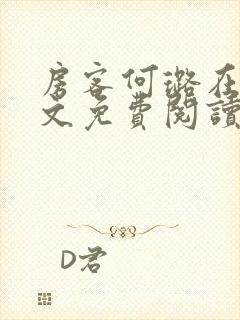 房客何璐在
文免費閱讀
D君